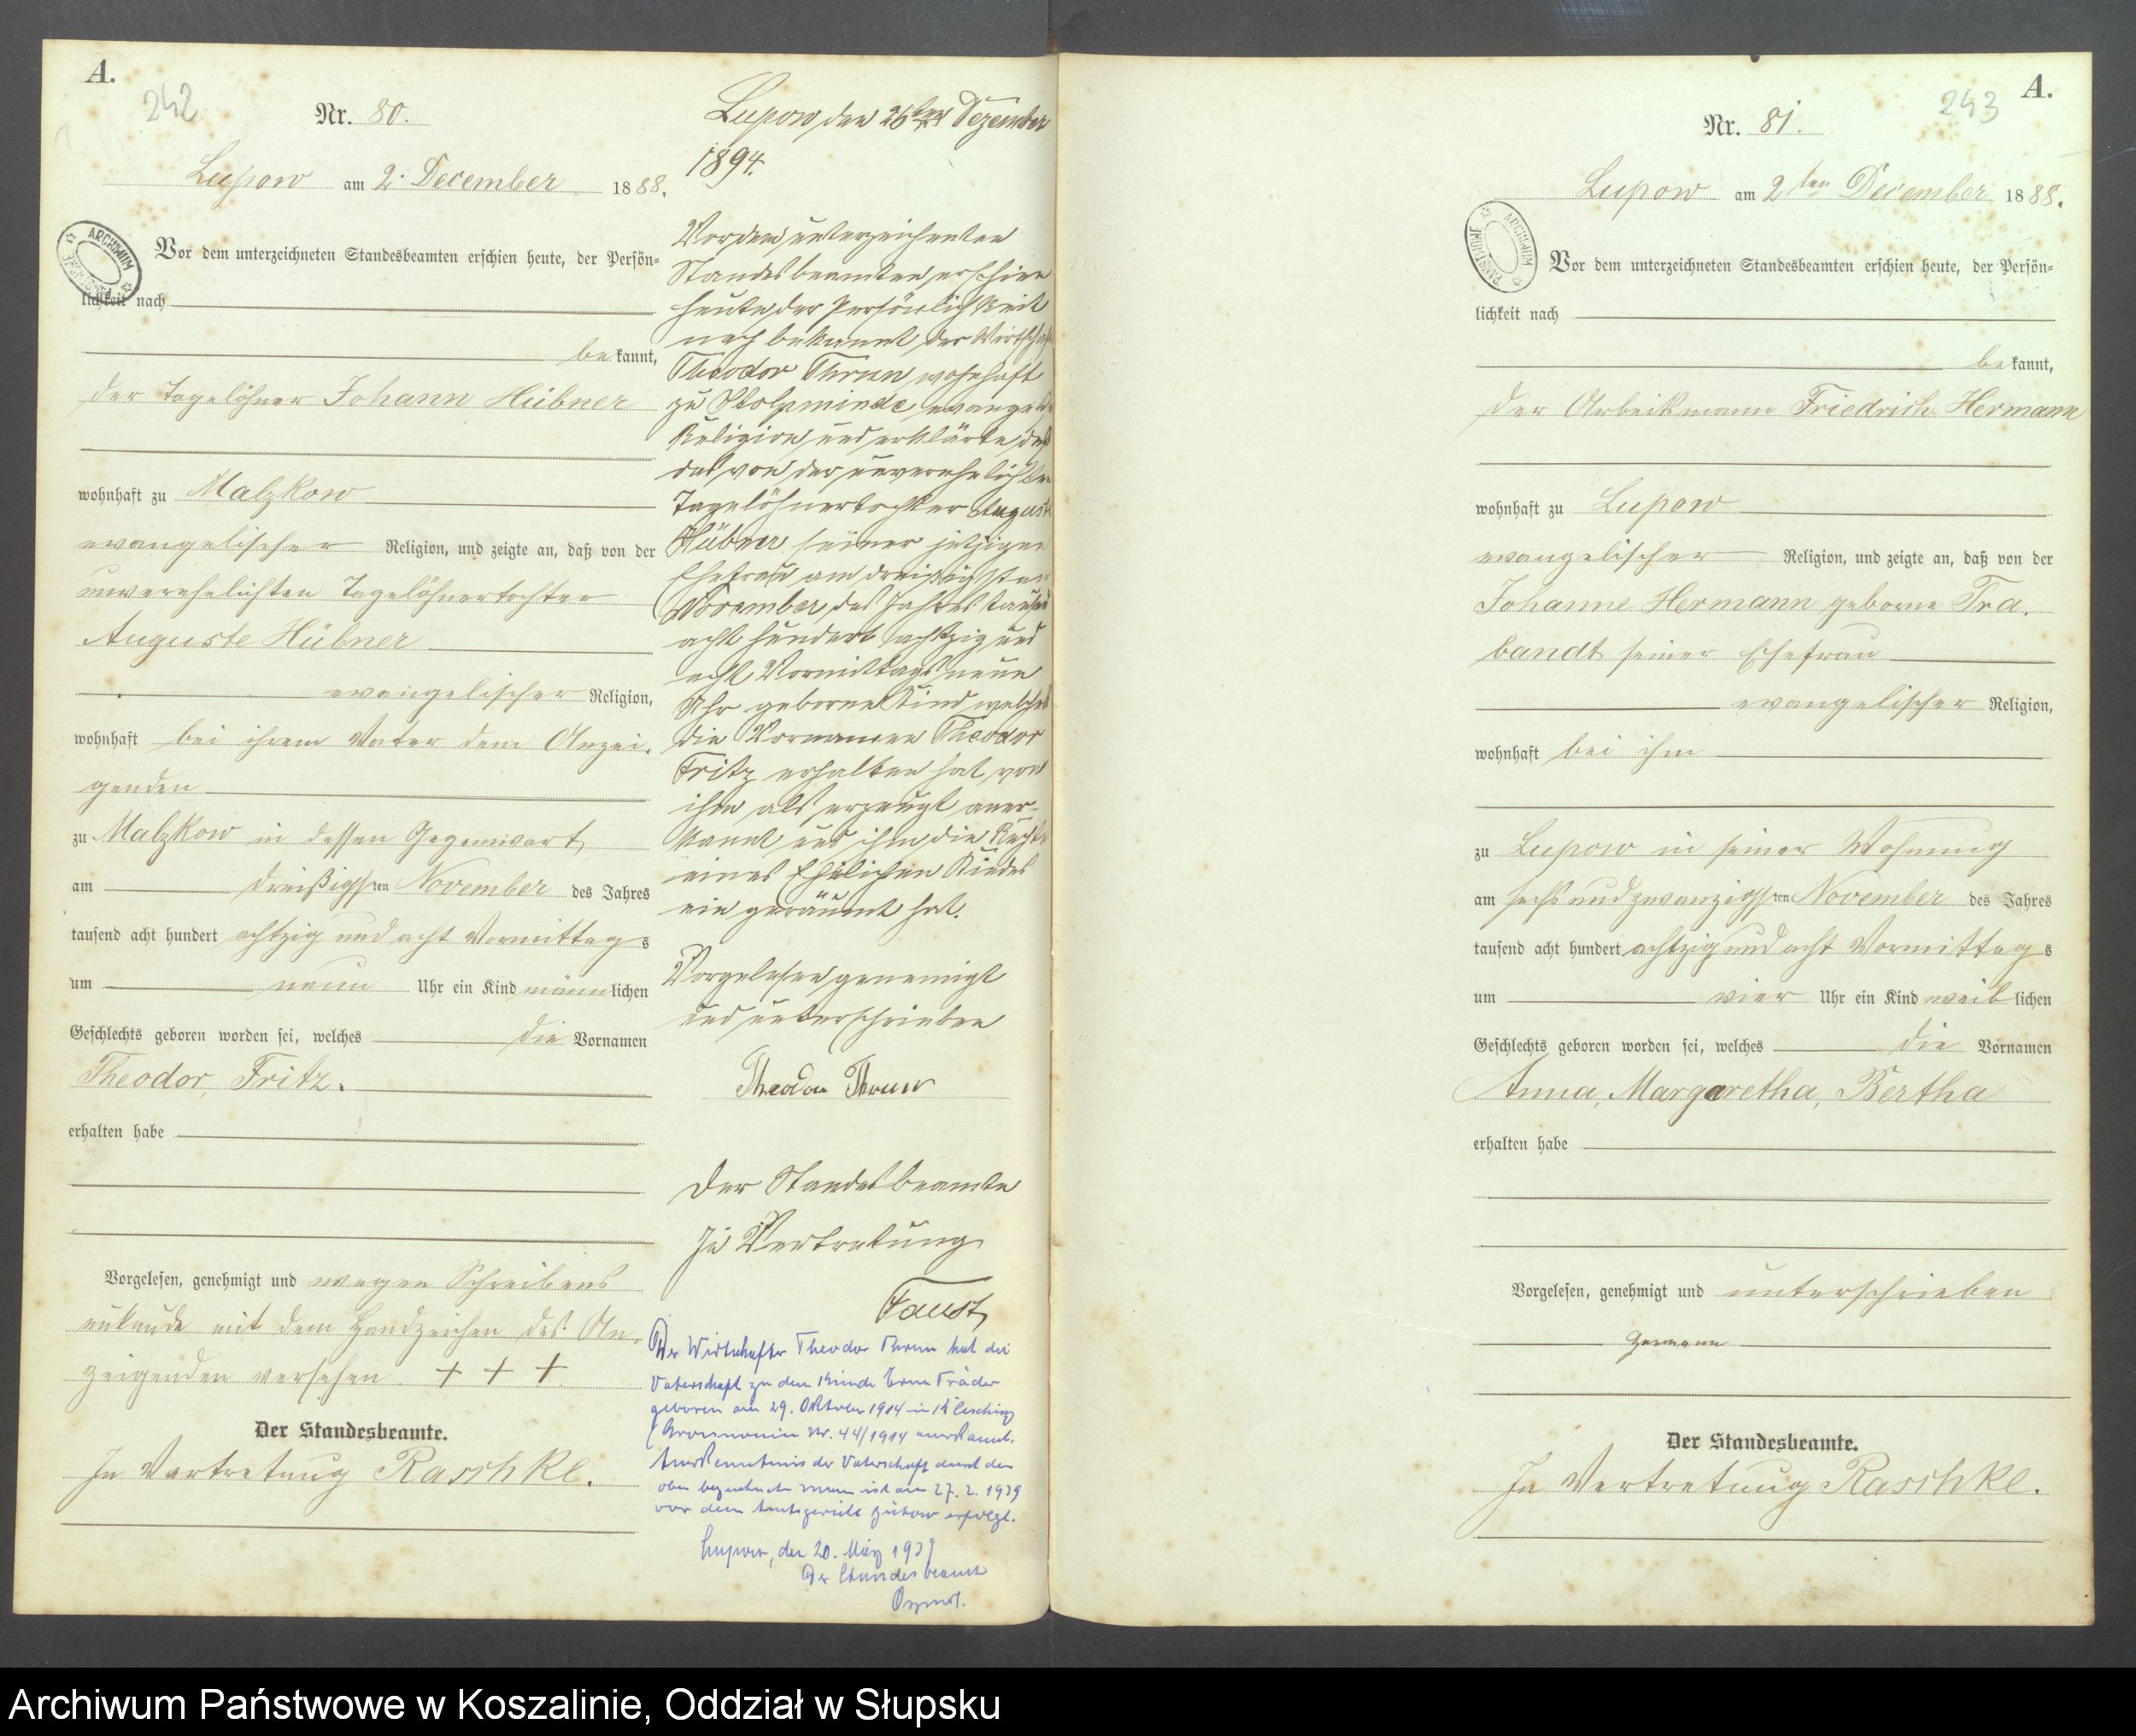 A.
242
Nr. 80.
Lupow am 2. December 1888.
ARCHIWUM
Vor dem unterzeichneten Standesbeamten erschien heute, der Persön=
lichkeit nach
bekannt,
der Tagelöhner Johann Hübner
wohnhaft zu Malzkow
evangelischer Religion, und zeigte an, daß von der
unverehelichten Tagelöhnertochter
Auguste Hübner
evangelischer Religion,
wohnhaft bei ihrem Vater dem Anzei-
genden
zu Malzkow in dessen Gegenwart
am dreißigsten November des Jahres
tausend acht hundert achtzig und acht Vormittags
um neun Uhr ein Kind männlichen
Geschlechts geboren worden sei, welches die Vornamen
Theodor, Fritz.
erhalten habe
Vorgelesen, genehmigt und wegen Schreibens
unkunde mit dem Handzeichen des An-
zeigenden versehen. + + +.
Der Standesbeamte.
In Vertretung Raschke.
Lupow, den 26ten Dezember
1894.
Vor dem unterzeichneten
Standesbeamten erschien
heute, der Persönlichkeit
nach bekannt, der
Theodor Thrun, wohnhaft
zu Stolpmünde,
Religion, und erklärte, daß
das von der unverehelichten
Tagelöhnertochter Auguste
Hübner seiner jetzigen
Ehefrau am dreißigsten
November des Jahres tausend
acht hundert achtzig und
acht Vormittags neun
Uhr geborne Kind welches
die Vornamen Theodor
Fritz erhalten hat, von
ihm als erzeugt aner-
kannt und ihm die Rechte
eines Ehelichen Kindes
ein geräumt hat.
Vorgelesen genemigt
und unterschrieben
Theodor Thrun
Der Standesbeamte
In Vertretung
Faust
Der Wirtschafter Theodor Thrun hat die
Vaterschaft zu dem Kinde Träder
geboren am 29. Oktober 1914 in
Nr. 44/1914 anerkannt.
Anerkenntnis der Vaterschaft durch den
oben bezeichneten Mann ist am 27. 2. 1939
vor dem Amtsgericht Bütow erfolgt.
Lupow, den 20. März 1939
Der Standesbeamte
A.
243
Nr. 81.
Lupow am 2ten December 1888.
ARCHIWUM
Vor dem unterzeichneten Standesbeamten erschien heute, der Persön=
lichkeit nach
bekannt,
der Arbeitsmann Friedrich Hermann
wohnhaft zu Lupow
evangelischer Religion, und zeigte an, daß von der
Johanne Hermann geborne Tra-
bandt seiner Ehefrau
evangelischer Religion,
wohnhaft bei ihm
zu Lupow in seiner Wohnung
am sechs und zwanzigsten November des Jahres
tausend acht hundert achtzig und acht Vormittags
um vier Uhr ein Kind weiblichen
Geschlechts geboren worden sei, welches die Vornamen
Anna, Margaretha, Bertha
erhalten habe
Vorgelesen, genehmigt und unterschrieben
Hermann
Der Standesbeamte.
In Vertretung Raschke.
Archiwum Państwowe w Koszalinie, Oddział w Słupsku